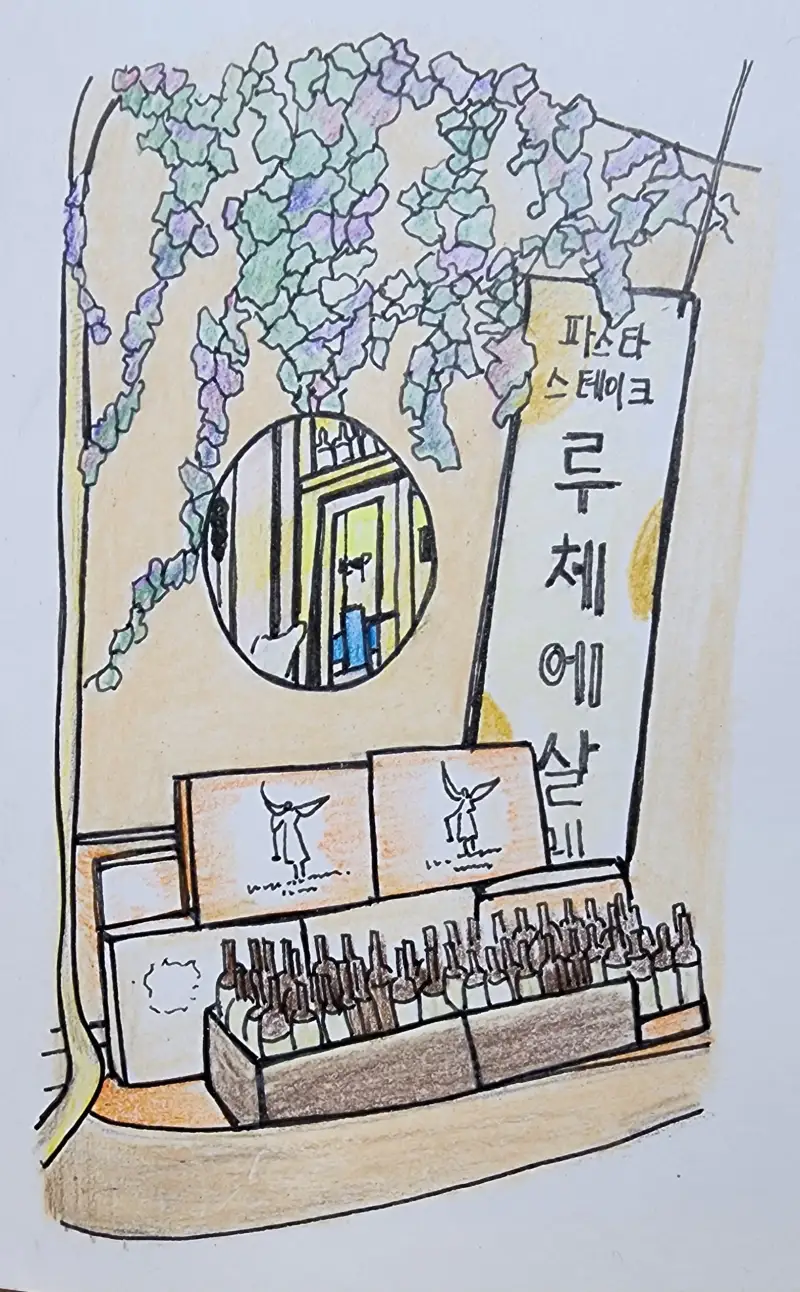 파스타
스테이크
루체에살레